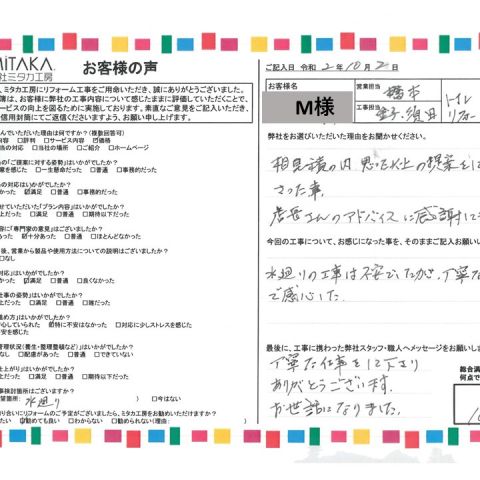 MiTAKA
社ミタカ工房
お客様の声
、ミタカ工房にリフォーム工事をご用命いただき、誠にありがとうございました。
簿は、お客様に弊社の工事内容について感じたままに評価していただくことで、
ービスの向上を図るために実施しております。素直なご意見をご記入いただき、
信用封筒にてご送付くださいますよう、お願い申し上げます。
んでいただいた理由は何ですか?(複数回答可)
内容 □評判 □サービス内容 □価格
当の対応 □当社の場所 □ご紹介 □ホームページ
当の「ご提案に対する姿勢」はいかがでしたか?
意を感じた □一生懸命だった □普通 □事務的だった
当の対応はいかがでしたか?
だった ☑満足 □普通 □事務的だった
せていただいた「プラン内容」はいかがでしたか?
上だった □満足 □普通 □期待以下だった
容に「専門家の意見」はございましたか?
あった ☑十分あった □普通 □ほとんどなかった
後、営業から製品や使用方法についての説明はございましたか?
□なし
対応」はいかがでしたか?
かった ☑満足 □普通 □良くなかった
仕事の姿勢」はいかがでしたか?
上だった □満足 □普通 □雑だった
進め方」はいかがでしたか?
心していられた ☑特に不安はなかった □対応に少しストレスを感じた
安を感じた
管理状況(養生・整理整頓など)」はいかがでしたか?
なし □配慮があった □普通 □できていない
仕上がり」はいかがでしたか?
上だった □満足 □普通 □期待以下だった
事検討箇所はございますか?
望箇所: 水廻り ) □今はない
り合いにリフォームのご予定がございましたら、ミタカ工房をお勧めいただけますか?
たい ☑勧めても良い □わからない □勧められない(理由:
ご記入日 令和 2 年 10 月 2 日
お客様名
M様
営業担当 橋本
工事担当
トイレ
リフォー
弊社をお選びいただいた理由をお聞かせください。
相見積の内、思った以上の提案を
さった事。
さんのアドバイスに感謝して
今回の工事について、お感じになった事を、そのままご記入お願い
水廻りの工事は不安でしたが、丁寧な
で感心した。
最後に、工事に携わった弊社スタッフ・職人へメッセージをお願いしま
丁寧な仕事をして下さり
ありがとうございます。
お世話になりました。
総合満
何点で